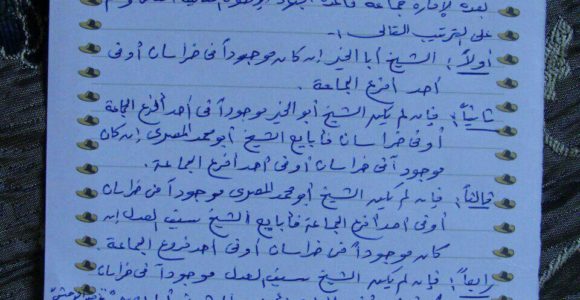 بعده لإمارة جماعة قاعدة الجهاد
على الترتيب التالي :-
أولاً : الشيخ أبا الخير إن كان موجوداً في خراسان أو في
أحد أفرع الجماعة .
ثانياً : فإن لم يكن الشيخ أبو الخير موجوداً في أحد أفرع الجماعة
أو في خراسان فأبايع الشيخ أبو محمد المصري إن كان
موجوداً في خراسان أو في أحد أفرع الجماعة .
ثالثاً : فإن لم يكن الشيخ أبو محمد المصري موجوداً في خراسان
أو في أحد أفرع الجماعة فأبايع الشيخ سيف العدل إن
كان موجوداً في خراسان أو في أحد فروع الجماعة .
رابعاً : فإن لم يكن الشيخ سيف العدل موجوداً في خراسان